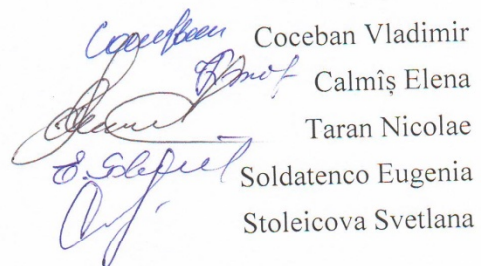 Coceban Vladimir
Calmîș Elena
Taran Nicolae
Soldatenco Eugenia
Stoleicova Svetlana